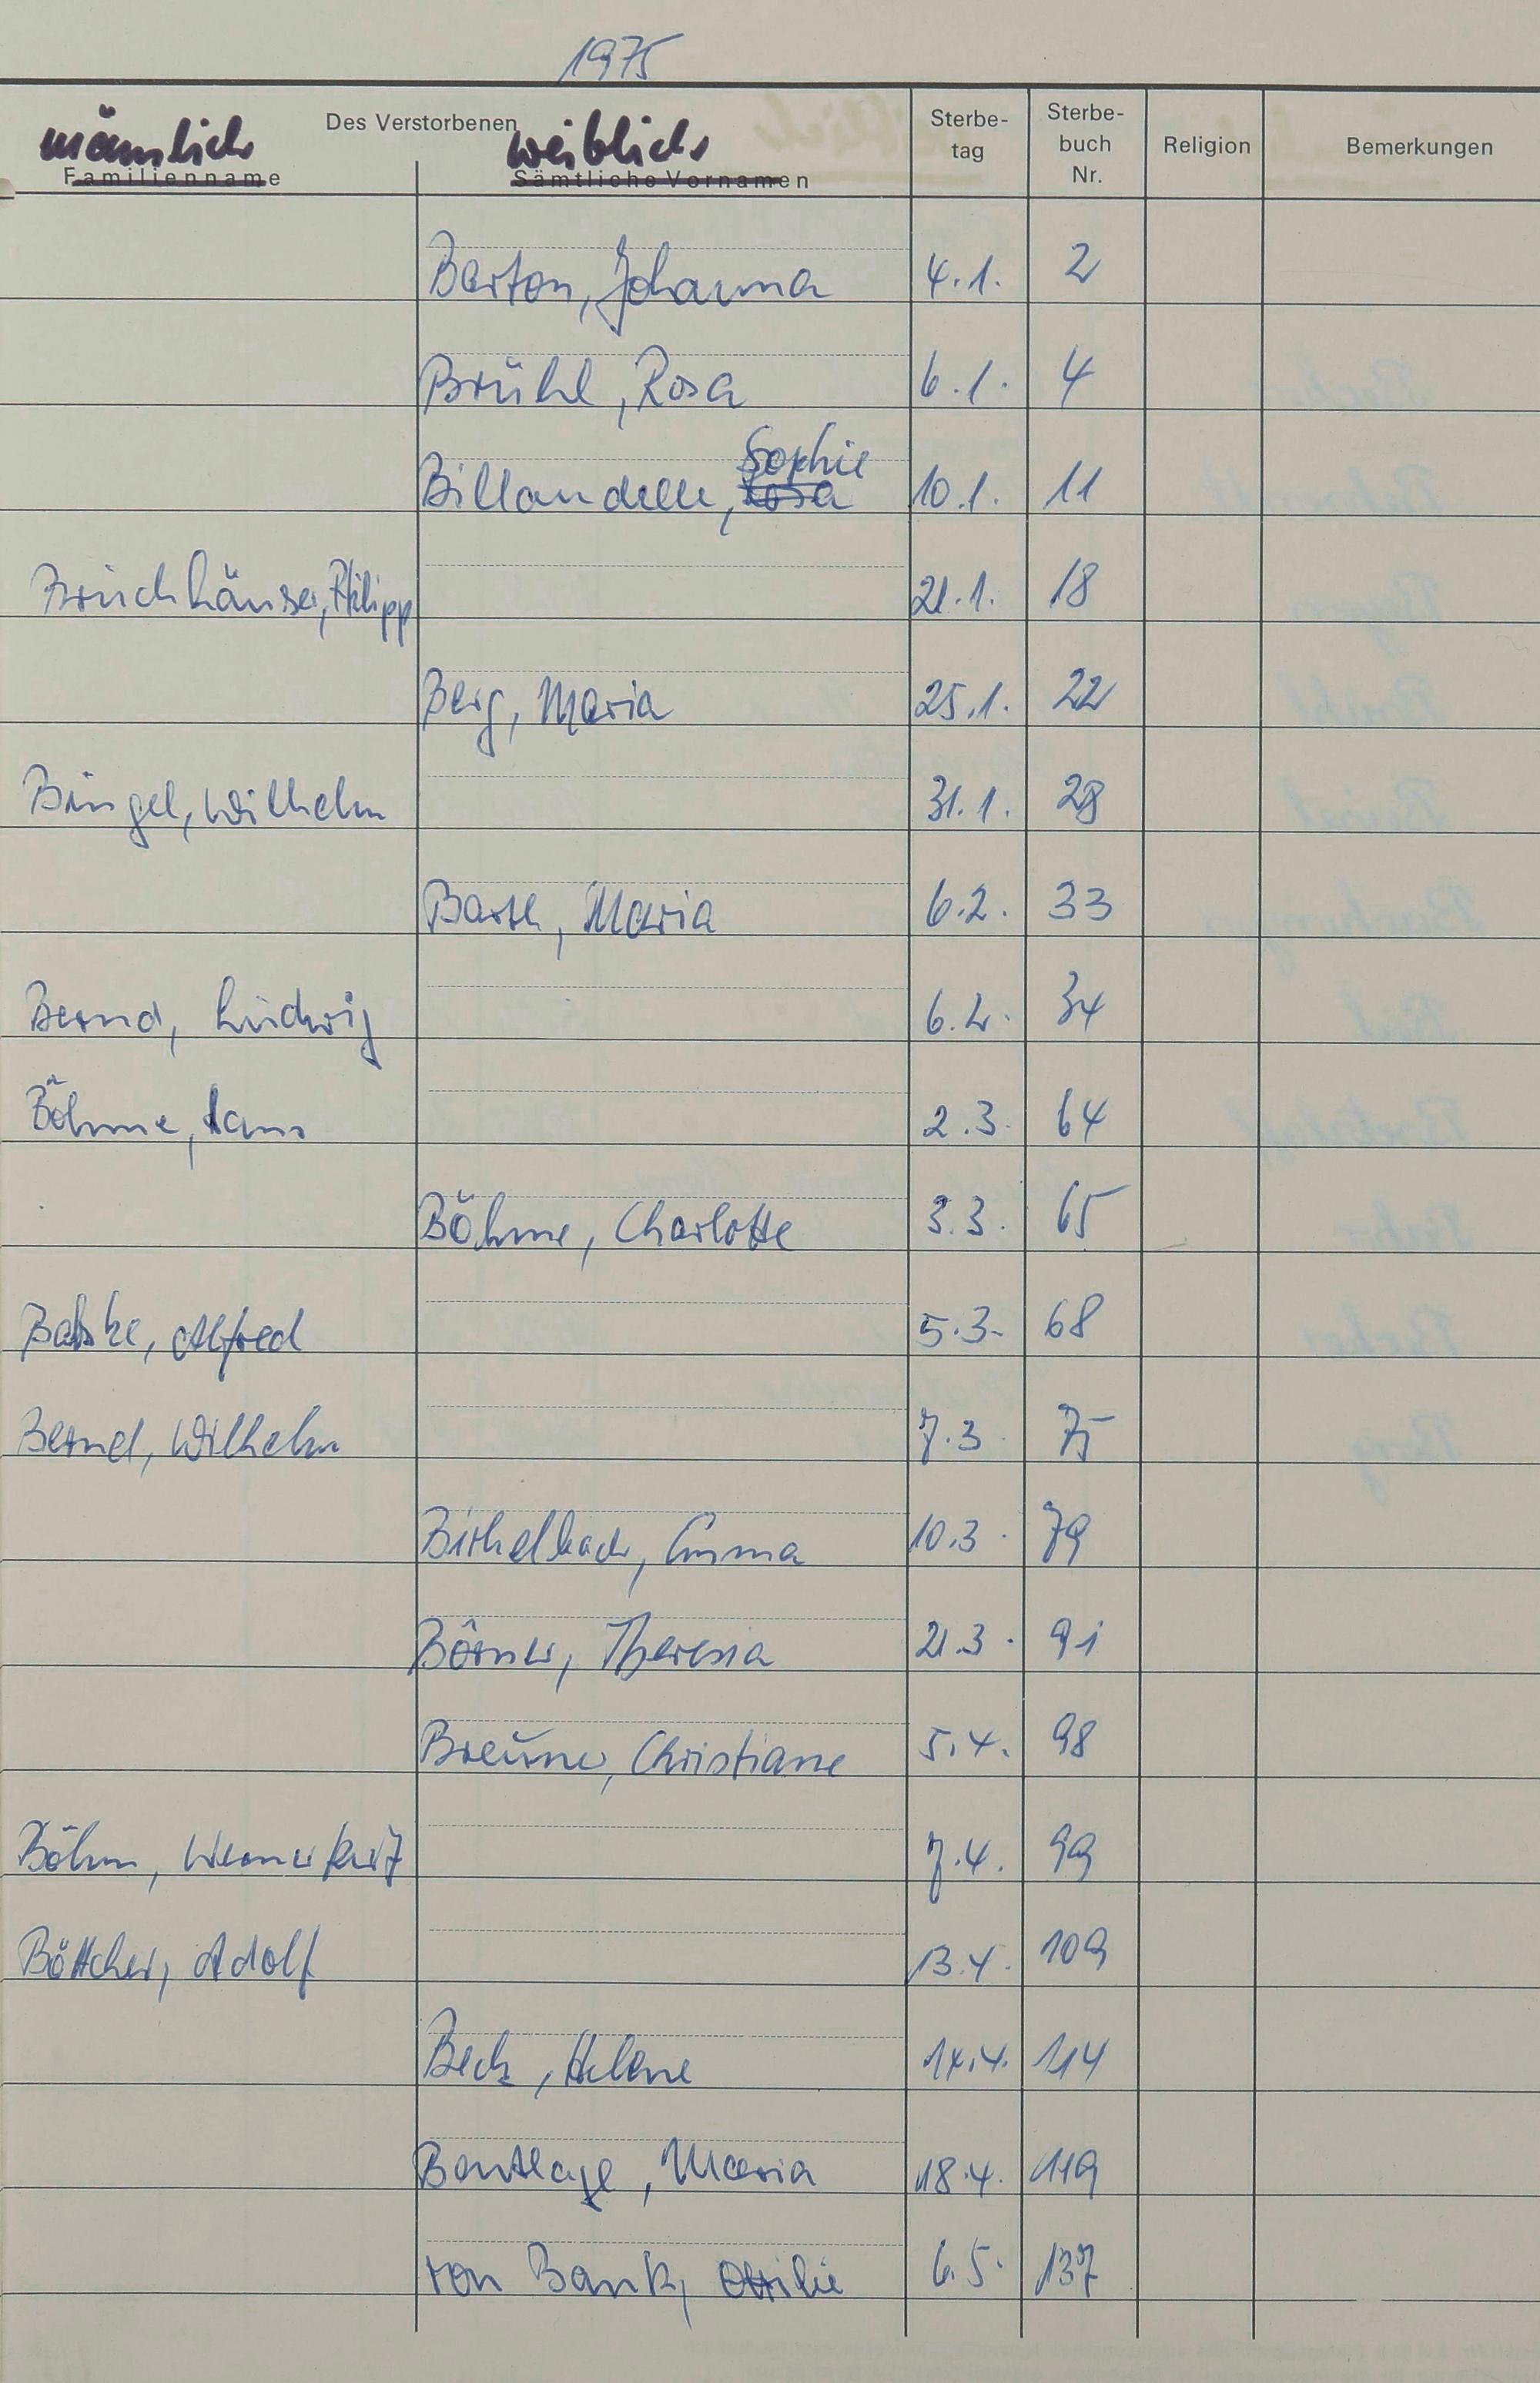 1975
Des Verstorbenen
männlich weiblich
Familienname Sämtliche Vornamen Sterbe-tag Sterbe-buch Nr. Religion Bemerkungen
Barton, Johanna 4.1. 2
Brühl, Rosa 6.1. 4
Sophie
Billandelle, Rosa 10.1. 11
Bruchhäuser, Philipp 21.1. 18
Berg, Maria 25.1. 22
Bingel, Wilhelm 31.1. 28
Barth, Maria 6.2. 33
Bernd, Ludwig 6.2. 34
Böhme, Hans 2.3. 64
Böhme, Charlotte 3.3. 65
Alfred 5.3. 68
Bernd, Wilhelm 7.3. 75
Birkelbach, Emma 10.3. 79
Börner, Theresia 21.3. 91
Christiane 5.4. 98
Böhm, Werner Kurt 7.4. 99
Böttcher, Adolf 13.4. 109
Beck, Helene 14.4. 114
Bentlage, Maria 18.4. 119
von Bank, Ottilie 6.5. 137